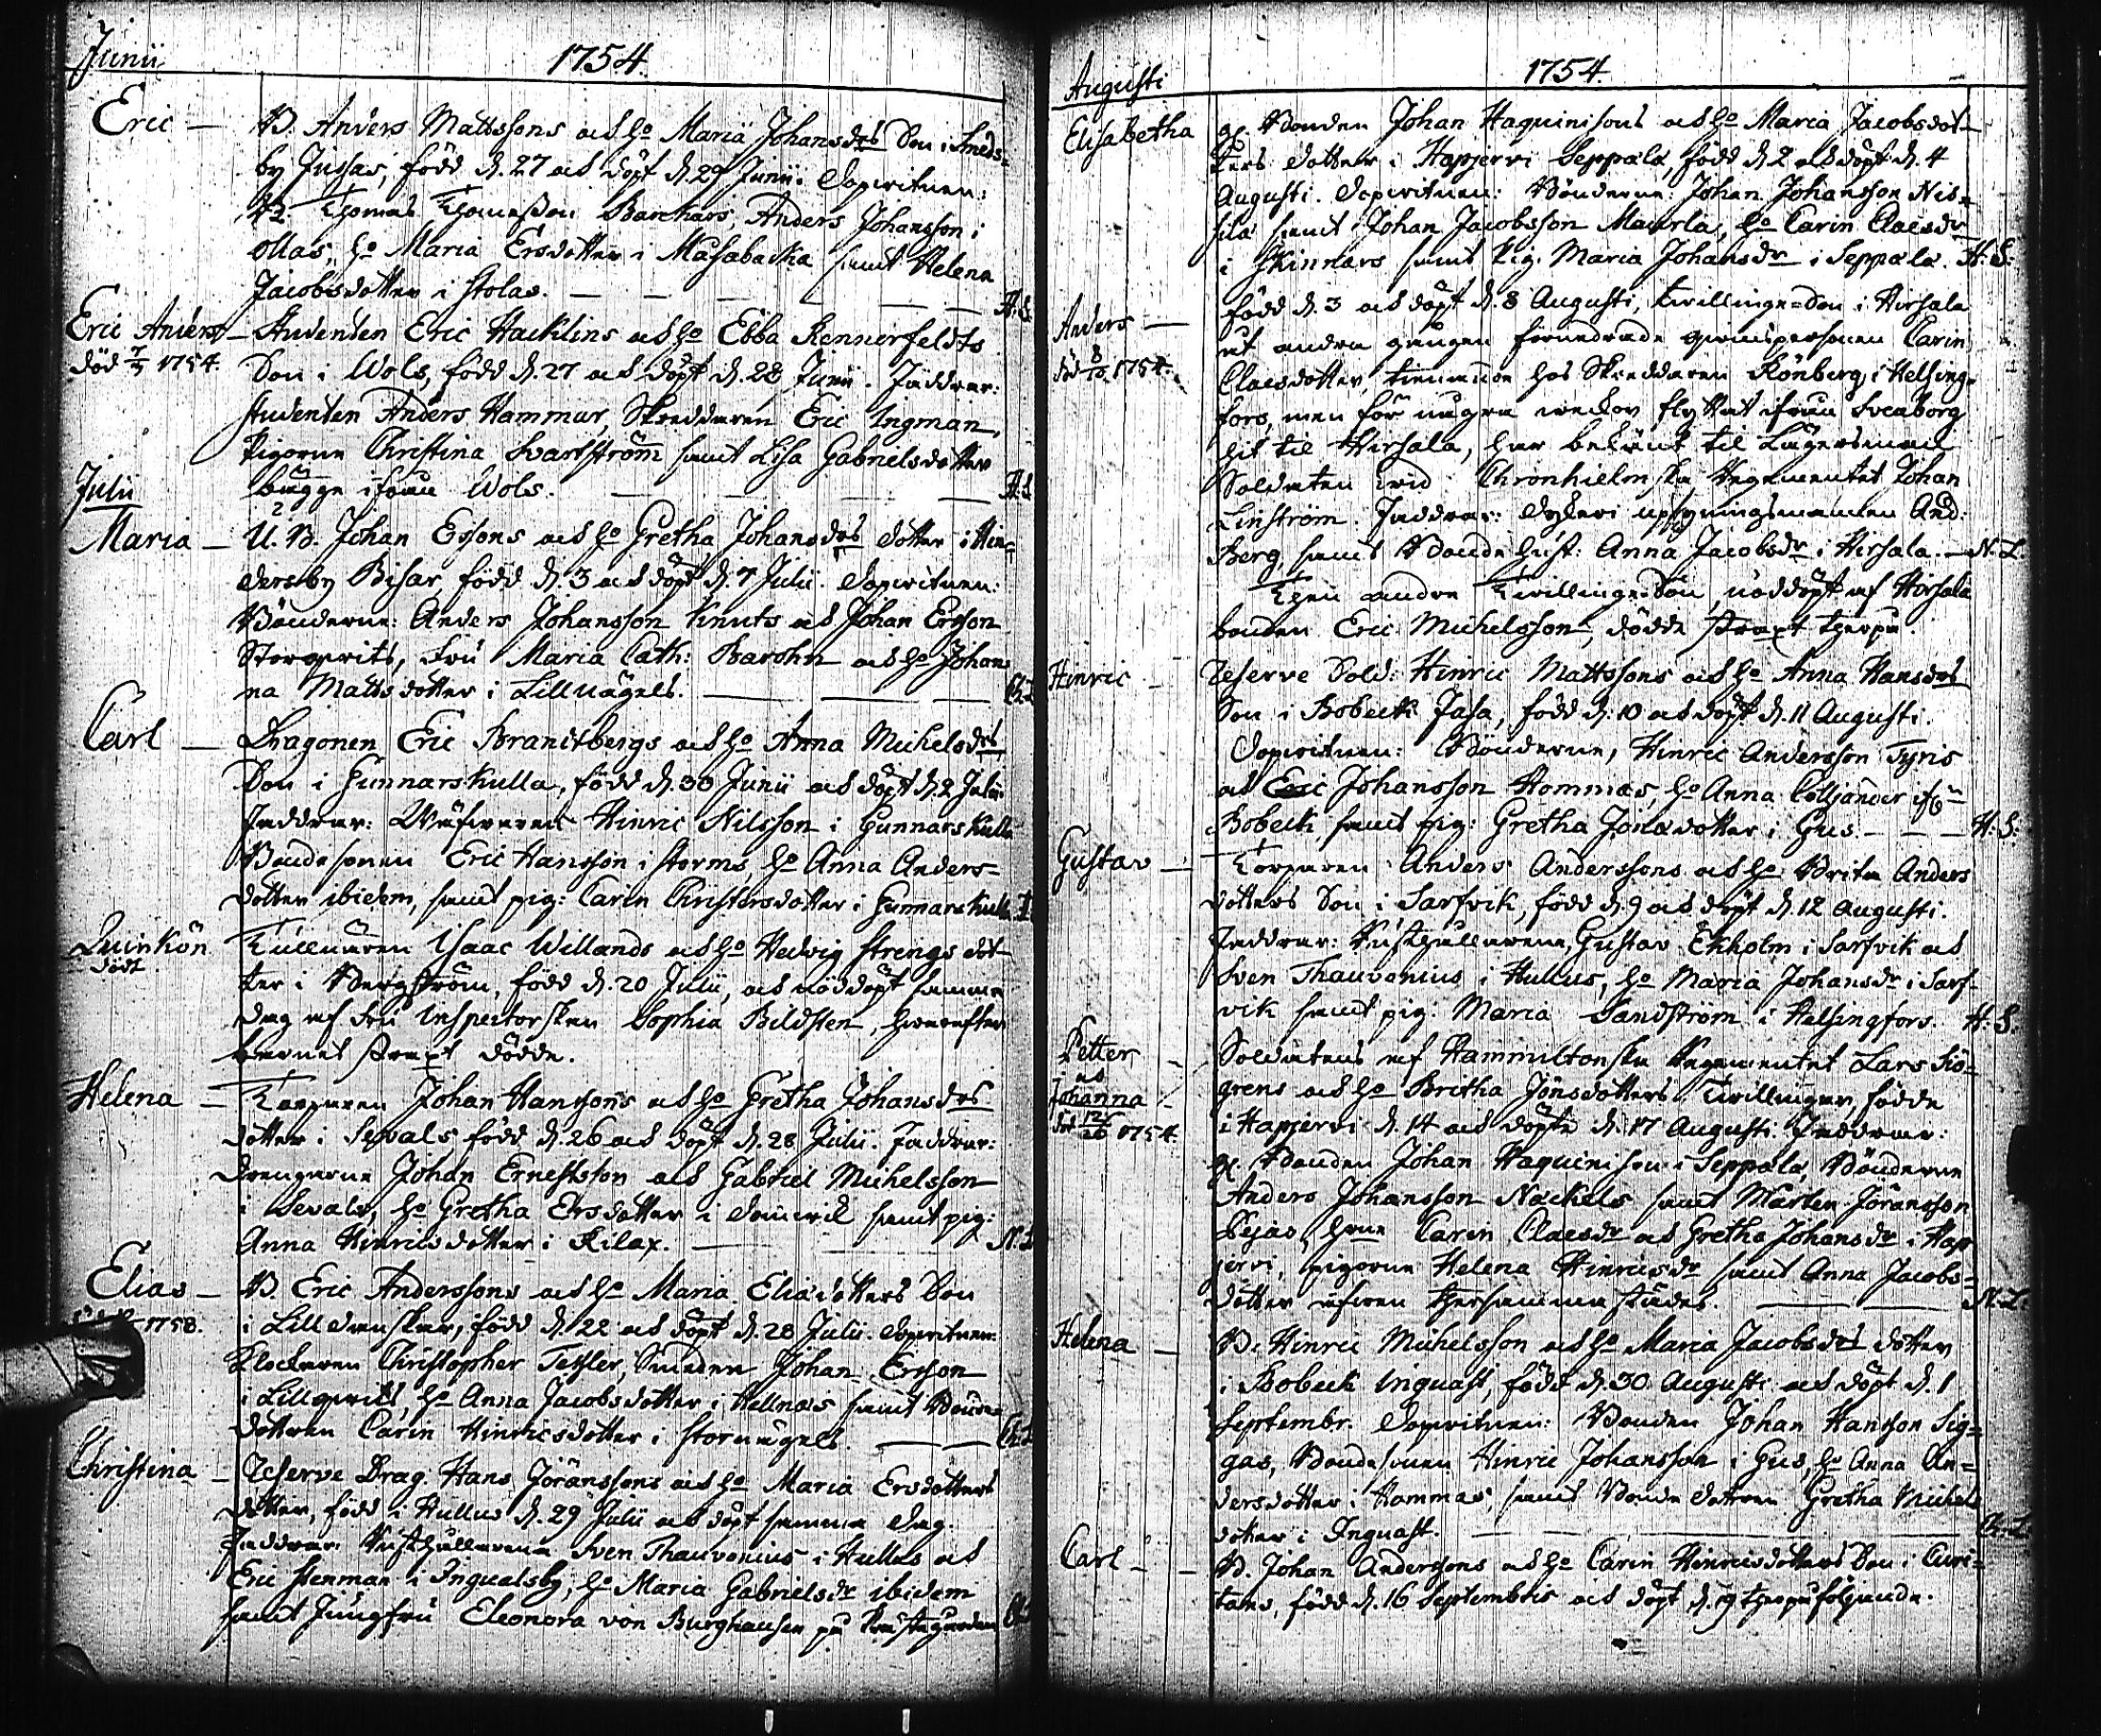 Junii 1754.
Eric — B. Anders Mattssons och ho Maria Johansdrs Son i Smeds=
by Jussas, född d. 27 och döpt d. 29 Junii. Dopvitnen:
Thomas Thomasson Barckars, Anders Johansson i
Ollas, ho Maria Ersdotter i Masabacka samt Helena
Jacobsdotter i Stolas. — — — — H. S.
Eric Anders — Studenten Eric Hacklins och ho Ebba Rennerfeldts
död 7/7 1754. Son i Wols, född d. 27 och döpt d. 28 Junii. Faddrar:
Studenten Anders Hammar, Skreddaren Eric Ingman,
Pigorne Christina Svartström samt Lisa Gabrielsdotter
bägge ifrån Wols. — — — H. S.
Julii
Maria — U. B. Johan Ersons och ho Gretha Johansdrs dotter i Hin=
dersby Bisas, född d. 3 och döpt d. 7 Julii. Dopvitnen:
Bönderne: Anders Johansson Knuts och Johan Ersson
Storgrits, Fru Maria Cath: Barohn och ho Johan=
na Matts dotter i Lillnägels. — —
Carl — Dragonen Eric Brandtbergs och ho Anna Michelsdrs
Son i Gunnarskulla, född d. 30 Junii och döpt d. 2 Julii.
Faddrar: Hinric Nilsson i Gunnarskulla
Bondesonen Eric Hansson i Storms, ho Anna Anders=
dotter ibidem, samt pig: Carin Christersdotter i Gunnarskulla
Quinkön Tullnären Isaac Willands och ho Hedvig Strengs dot=
dödt. ter i Bergström, född d. 20 Julii, och nöddöpt samma
dag af Fru Inspectorskan Sophia Bildsten, hvarefter
barnet straxt dödde.
Helena — Torparen Johan Hanssons och ho Gretha Johansdrs
dotter i Sevals, född d. 26 och döpt d. 28 Julii. Faddrar:
Drengarne Johan Ernestsson och Gabriel Michelsson
i Sevals, ho Gretha Ersdotter i samt pig:
Anna Hinricsdotter i Kilax. — N. L.
Elias — B. Eric Anderssons och ho Maria Eliædotters Son
1758. i Lill Danskar, född d. 22 och döpt d. 28 Julii. Dopvitnen:
Klockaren Christopher Tesler, Smeden Johan Ersson
i Lillgrits, ho Anna Jacobsdotter i Hellnäs samt Bonde=
dottren Carin Hinricsdotter i Stornägels. — —
Christina — Reserve Drag. Hans Göranssons och ho Maria Ersdotters
dotter, född i Hullus d. 29 Julii och döpt samma dag.
Faddrar: Rusthållarena Sven Thauvonius i Hullus och
Eric Stenman i Ingvalsby, ho Maria Gabrielsdr ibidem
samt Jungfru Eleonora von Burghausen på Prästegården
Augusti 1754.
Elisabetha Bonden Johan Haquinisons och ho Maria Jacobsdot=
ters dotter i Hapjervi Seppälä, född d. 2 och döpt d. 4
Augusti. Dopvitnen: Bönderne: Johan Johansson Nis=
sila samt Johan Jacobsson Maurla, ho Carin Claesdr
i Skinnars samt Pig. Maria Johansdr i Seppälä. H. S.
Anders — född d. 3 och döpt d. 8 Augusti, twillinge=Son i Hirsala
död 8/10 1754. ut andra gången förnedrade qvinspersonen Carin
Claesdotter, tienande hos Skreddaren Rönberg i Helsing=
fors, men för några weckor flyttat ifrån Sveaborg
hit til Hirsala, har bekänt til Lägersman
Soldaten vid Chronhielmska Regementet Johan
Linström. Faddrar: And:
Berg, samt Bonde hust: Anna Jacobsdr i Hirsala. — N. L.
Then andre Twillinge=Son, nöddöpt af Hirsala
bonden Eric Michelsson, dödde straxt therpå.
Hinric — Reserve Sold: Hinric Mattssons och ho Anna Hansdrs
Son i Bobeck Jasa, född d. 10 och döpt d. 11 Augusti.
Dopvitnen: Bönderne, Hinric Andersson Tyris
och Eric Johansson Hommas, ho Anna Colljander
Bobeck, samt pig: Gretha Jonædotter i Gus. — — H. S:
Gustav — Torparen Anders Anderssons och ho Brita Anders
dotters Son i Sarfvik, född d. 9 och döpt d. 12 Augusti.
Faddrar: Rusthållarena Gustav Ekholm i Sarfvik och
Sven Thauvonius i Hullus, ho Maria Johansdr i Sarf=
vik samt pig. Maria Sandström i Helsingfors. H. S.
Petter — Soldatens af Hammiltonska Regementet Lars Siö=
och
Johanna — grens och ho Britha Jönsdotters Twillingar, födde
död 12/26 1754. i Hapjervi d. 14 och döpte d. 17 Augusti. Faddrar:
Bonden Johan Haquinison i Seppälä, Bönderne
Anders Johansson Näckels samt Mårten Göransson
Pejas, Carin Claesdr och Gretha Johansdr i Hap
jervi, pigorne Helena Hinricsdr samt Anna Jacobs=
dotter thersammastädes. — — N. L.
Helena — B. Hinric Michelsson och ho Maria Jacobsdrs dotter
i Bobeck Inguast, född d. 30 Augusti och döpt d. 1
Septembr. Dopvitnen: Bonden Johan Hansson Sig=
gas, Bondesonen Hinric Johansson i Gus, ho Anna An=
dersdotter i Hommas, samt Bonde dottren Gretha Michels
dotter i Inguast. — — —
Carl — B. Johan Anderssons och ho Carin Hinricsdotters Son i Curi=
tans, född d. 16 Septembris och döpt d. 19 therpåföljande.